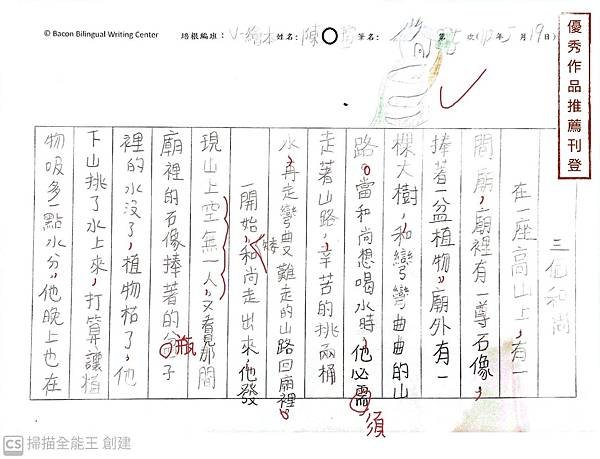 © Bacon Bilingual Writing Center 培根編班：V-繪本 姓名：陳○ 筆名： 第 次( 年5月19日)
優秀作品推薦刊登
三個和尚
在一座高山上，有一
間廟，廟裡有一尊石像，
捧著一盆植物，廟外有一
棵大樹，和彎彎曲曲的山
路。當和尚想喝水時，他必需
須
走著山路，辛苦的挑兩桶
水，再走彎曲又難走的山路回廟裡。
矮
一開始，和尚走出來，他發
現山上空無一人，又看見那間
廟裡的石像捧著的子
瓶
裡的水沒了，植物枯了，他
下山挑了水上來，打算讓植
物吸多一點水分，他晚上也在
CS 掃描全能王 創建